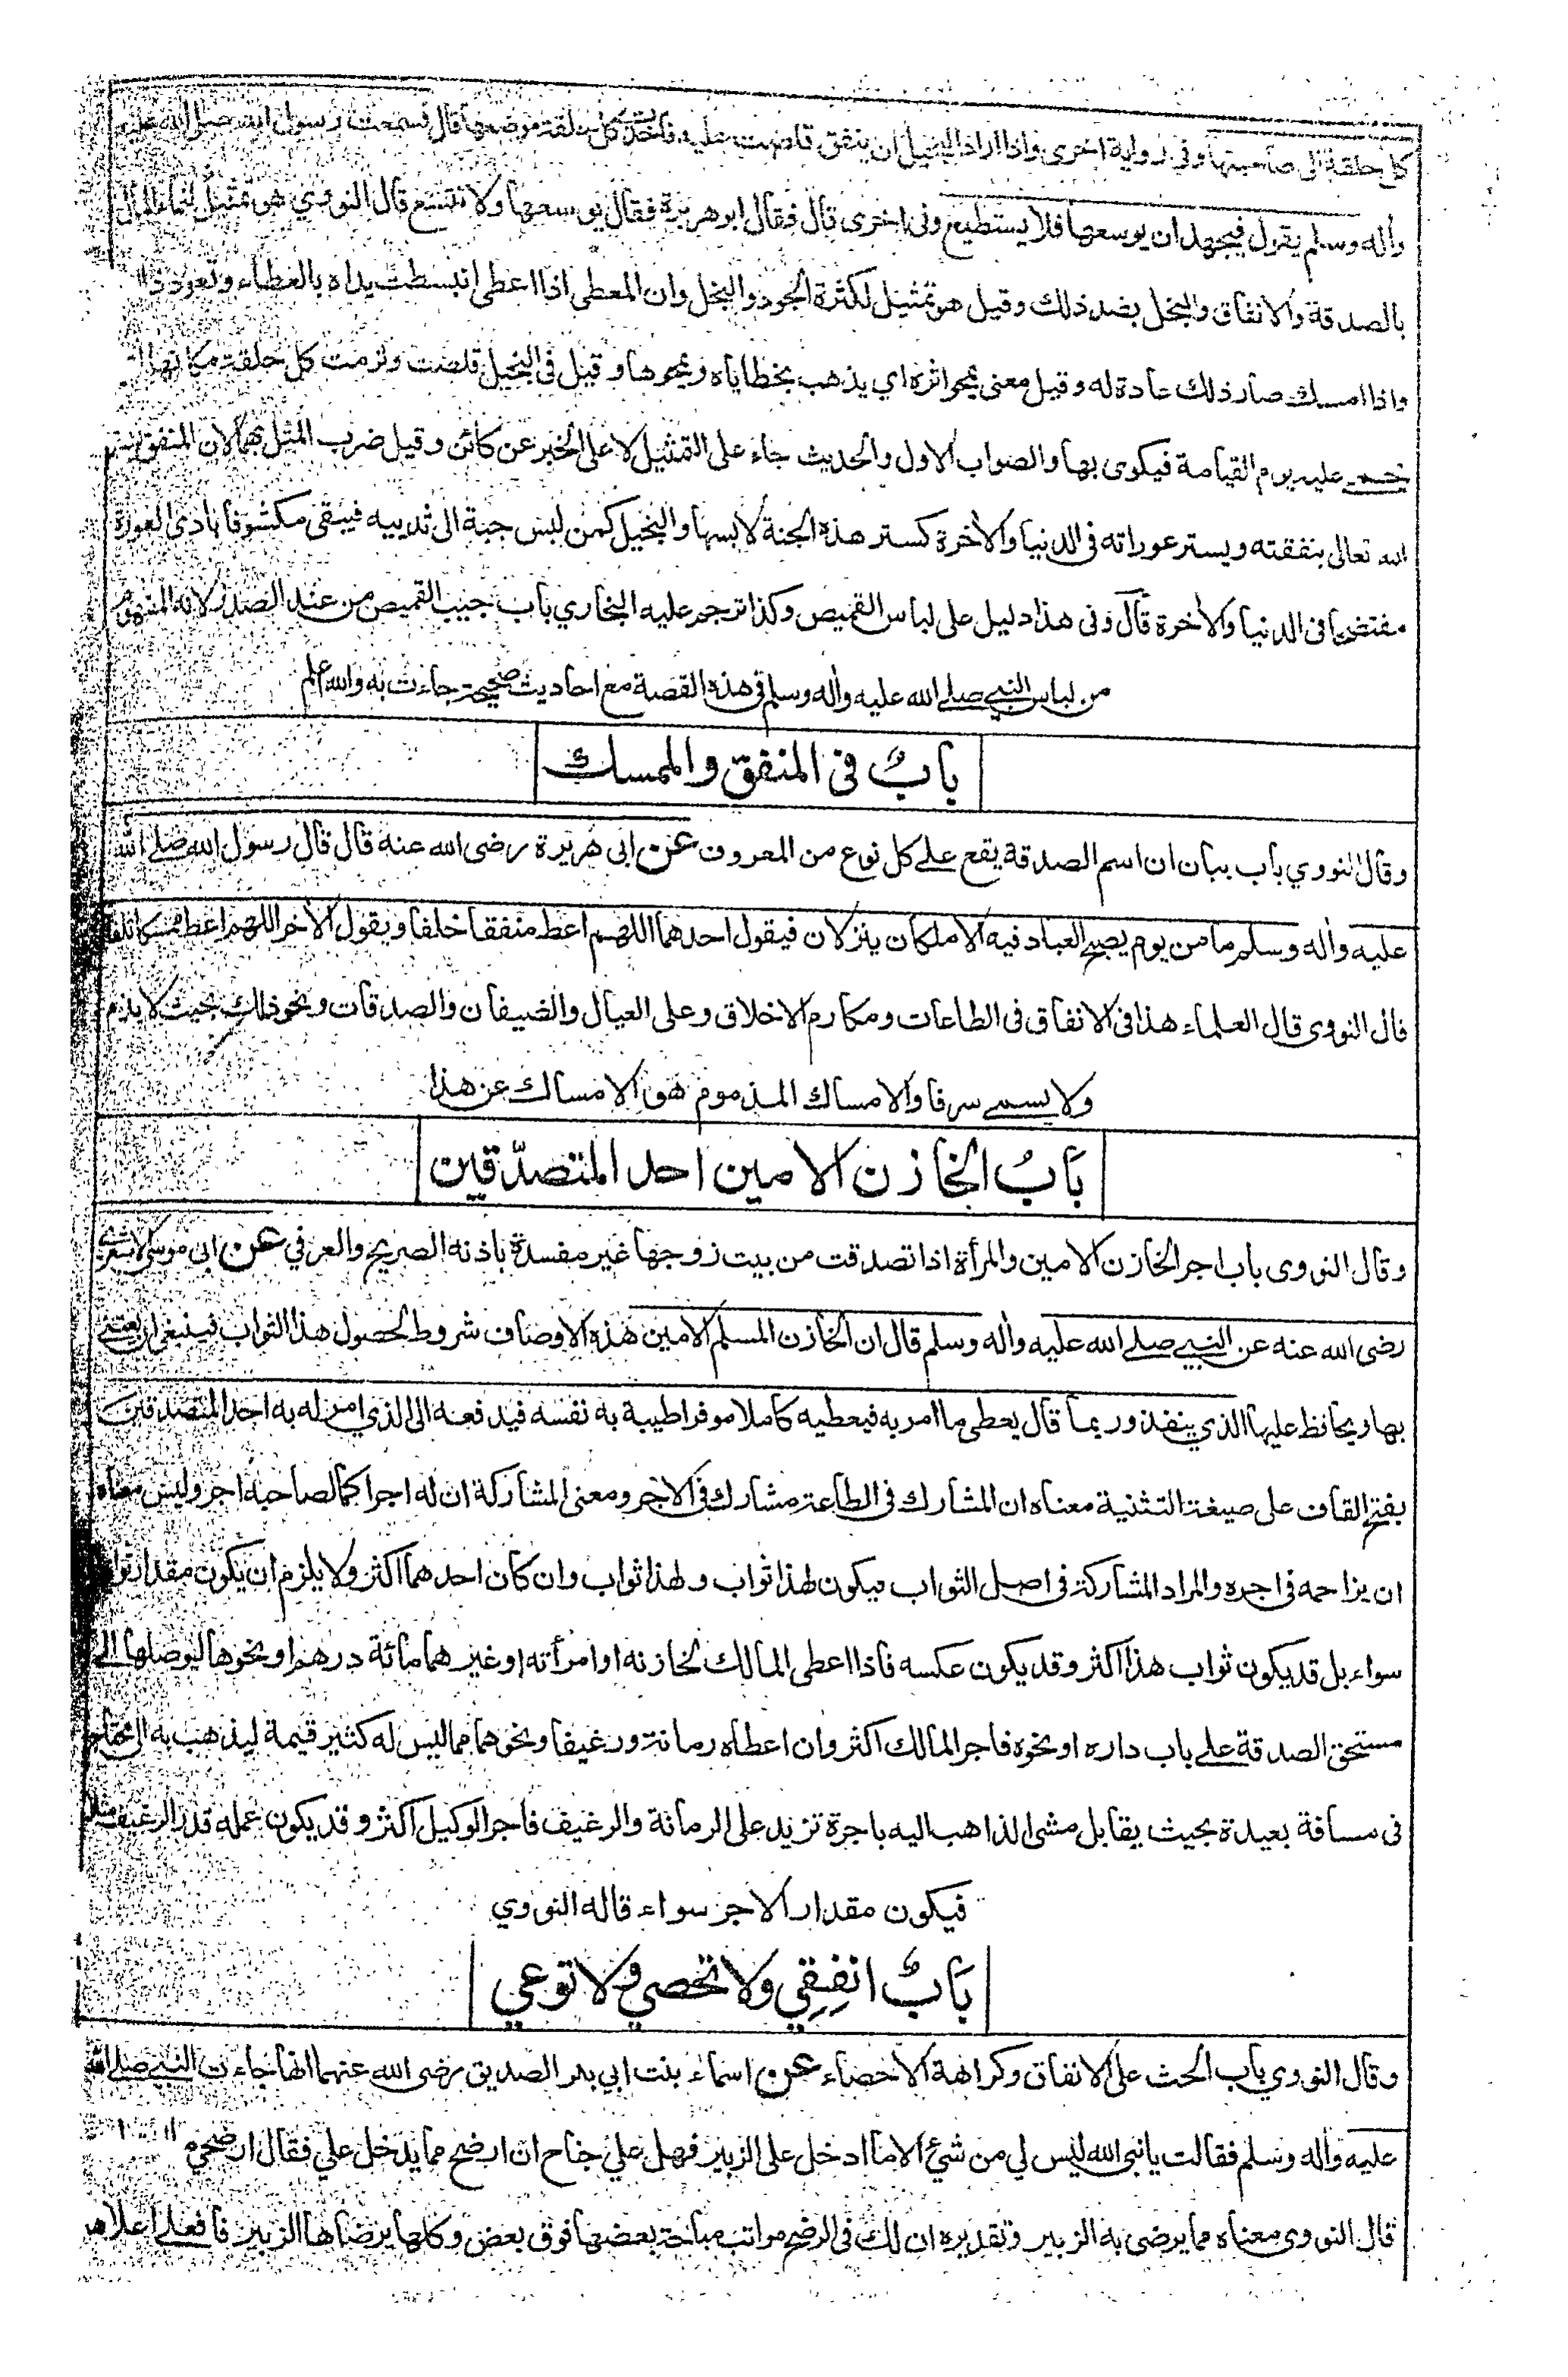 كل حلقة الى صاحبتها وفى رواية اخرى واذا اراد البخيل ان ينفق قلصت عليه واخذت كل حلقة موضعها قال فسمعت رسول الله صلى الله عليه
واٰله وسلم يقول فيجهد ان يوسعها فلا يستطيع وفى اخرى قال فقال ابو هريرة فقال يوسعها ولا تتسع قال النووي هو تمثيل لنماء المال
بالصدقة والانفاق والبخل بضد ذلك وقيل هو تمثيل لكثرة الجود والبخل وان المعطى اذا اعطى انبسطت يداه بالعطاء وتعود ذا
واذا امسك صار ذلك عادة له وقيل معنى يمحو اثره اي يذهب بخطاياه ويمحوها وقيل فى البخيل قلصت ولزمت كل حلقة مكانها
يحمى عليه يوم القيامة فيكوى بها والصواب الاول والحديث جاء على التمثيل لا على الخبر عن كائن وقيل ضرب المثل بهما لان المنفق يستر
الله تعالى بنفقته ويستر عوراته فى الدنيا والأخرة كستر هذه الجنة لابسها والبخيل كمن لبس جبة الى ثدييه فيبقى مكشوفا بادى العورة
مفتضحا فى الدنيا والأخرة قال وفى هذا دليل على لباس القميص وكذا ترجم عليه البخاري باب جيب القميص من عند الصدر لانه المفهوم
من لباس النبي صلى الله عليه واٰله وسلم فى هذه القصة مع احاديث صحيحة جاءت به والله اعلم
بابٌ فى المنفق والممسك
وقال النووي باب بيان ان اسم الصدقة يقع على كل نوع من المعروف عن ابى هريرة رضى الله عنه قال قال رسول الله صلى الله
عليه واٰله وسلم ما من يوم يصبح العباد فيه الا ملكان ينزلان فيقول احدهما اللهم اعط منفقا خلفا ويقول الأخر اللهم اعط ممسكا تلفا
قال النووى قال العلماء هذا فى الانفاق فى الطاعات ومكارم الاخلاق وعلى العيال والضيفان والصدقات ونحو ذلك بحيث لا يذم
ولا يسمى سرفا والامساك المذموم هو الامساك عن هذا
بَابُ الخازن الامين احد المتصدّقين
وقال النووى باب اجر الخازن الامين والمرأة اذا تصدقت من بيت زوجها غير مفسدة باذنه الصريح والعرفي عن ابى موسى الاشعرى
رضى الله عنه عن النبي صلى الله عليه واٰله وسلم قال ان الخازن المسلم الامين هذه الاوصاف شروط لحصول هذا الثواب فينبغى ان يعتنى
بها ويحافظ عليها الذي ينفذ وربما قال يعطى ما امر به فيعطيه كاملا موفرا طيبة به نفسه فيدفعه الى الذي امر له به احد المتصدقين
بفتح القاف على صيغة التثنية معناه ان المشارك فى الطاعة مشارك فى الاجر ومعنى المشاركة ان له اجرا كما لصاحبه اجر وليس معناه
ان يزاحمه فى اجره والمراد المشاركة فى اصل الثواب فيكون لهذا ثواب ولهذا ثواب وان كان احدهما اكثر ولا يلزم ان يكون مقدار ثوابهما
سواء بل قد يكون ثواب هذا اكثر وقد يكون عكسه فاذا اعطى المالك لخازنه او امرأته او غيرهما مائة درهم او نحوها ليوصلها الى
مستحق الصدقة على باب داره او نحوه فاجر المالك اكثر وان اعطاه رمانة ورغيفا ونحوهما مما ليس له كثير قيمة ليذهب به الى محتاج
فى مسافة بعيدة بحيث يقابل مشى الذاهب اليه باجرة تزيد على الرمانة والرغيف فاجر الوكيل اكثر وقد يكون عمله قدر الرغيف مثلا
فيكون مقدار الاجر سواء قاله النووي
بَابٌ انفِقِي ولا تحصي ولا توعي
وقال النووي باب الحث على الانفاق وكراهة الاحصاء عن اسماء بنت ابي بكر الصديق رضى الله عنهما انها جاءت النبي صلى الله
عليه واٰله وسلم فقالت يا نبى الله ليس لي من شئ الا ما ادخل على الزبير فهل علي جناح ان ارضخ مما يدخل علي فقال ارضخي ما
قال النووى معناه مما يرضى به الزبير وتقديره ان لك فى الرضخ مراتب مباحة بعضها فوق بعض وكلها يرضاها الزبير فافعلى اعلاها